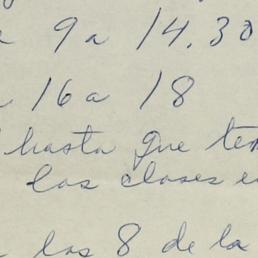 9 a 14.30
a 16 a 18
hasta que ter
las clases e
las 8 de la